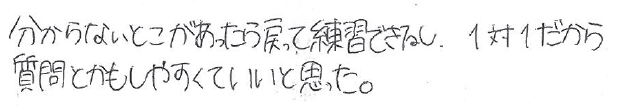 分からないとこがあったら戻って練習できるし、1対1だから
質問とかもしやすくていいと思った。